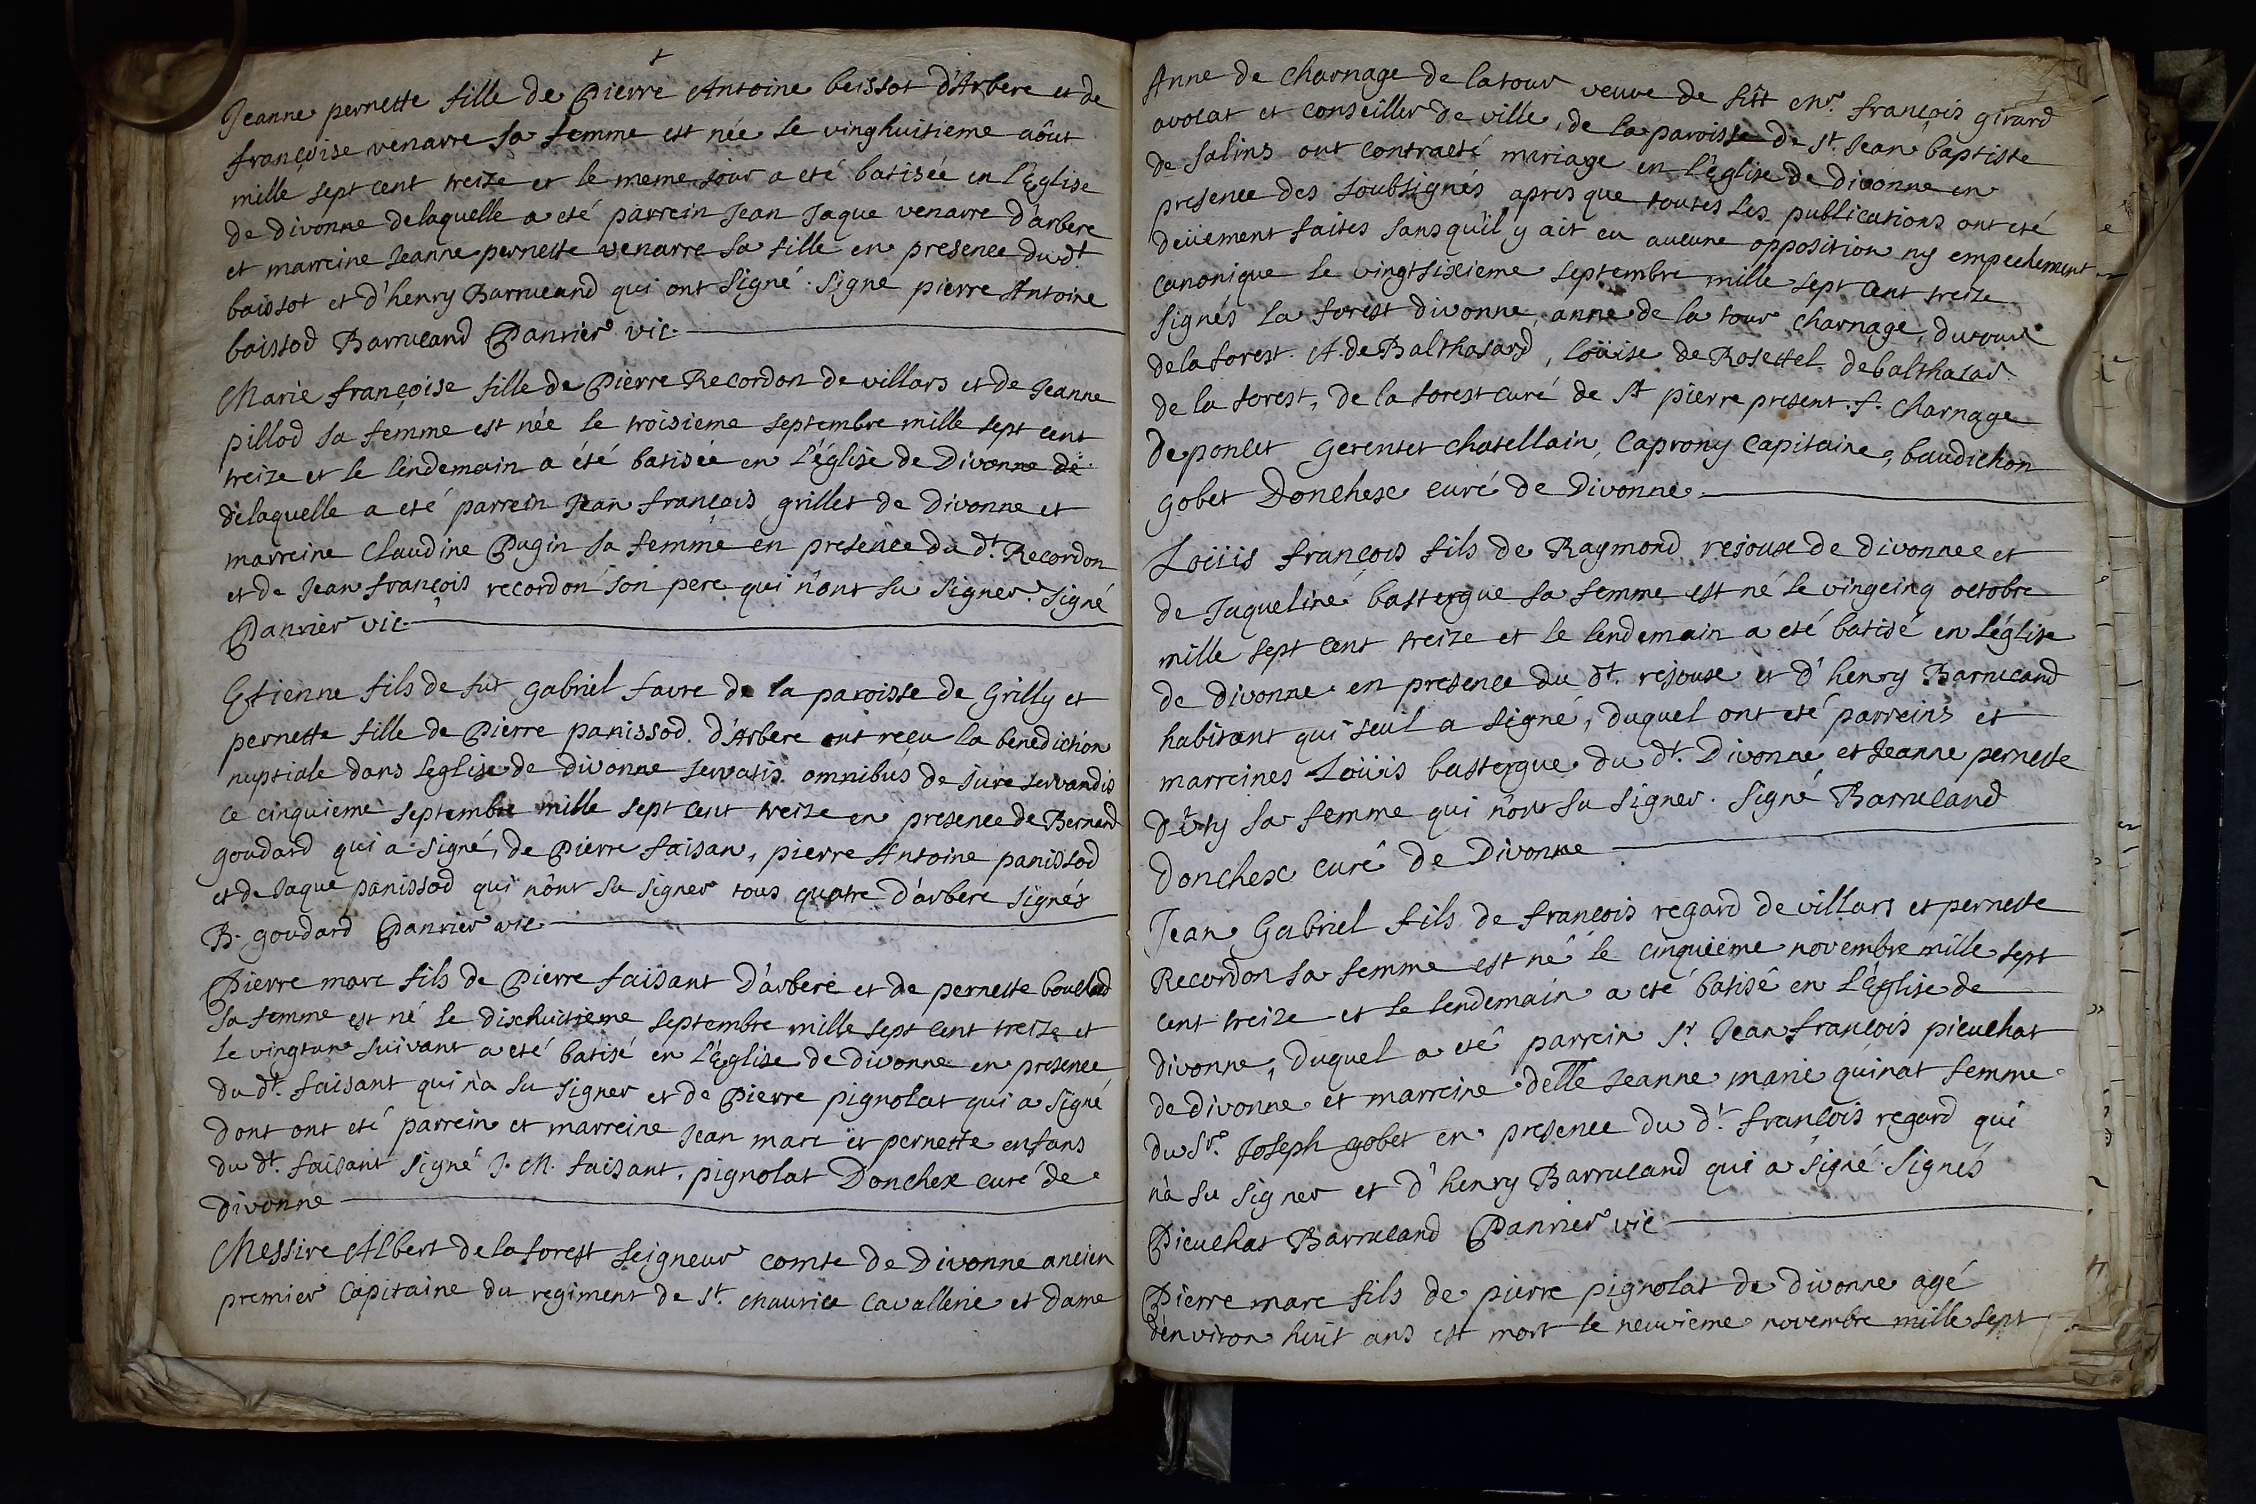 Jeanne pernette fille de Pierre Antoine beissot d'Arbere et de
françoise venarre sa femme est née le vinghuitieme aôut
mille sept cent treize et le meme jour a eté batisée en l'Eglise
de divonne delaquelle a eté parrein Jean Jaque venarre d'arbere
et marreine Jeanne pernette venarre sa fille en presence du dt.
baissot et d'henry Barrucand qui ont signé. signe pierre Antoine
baissod Barrucand Panrier vic.
Marie françoise fille de Pierre Recordon de villars et de Jeanne
pillod sa femme est née le troisieme septembre mille sept cent
treize et le lendemain a été batisée en l'église de Divonne de
delaquelle a eté parrein Jean françois grillet de divonne et
marreine Claudine Pugin sa femme en presence du dt. Recordon
et de Jean françois recordon son pere qui n'ont su signer. signé
Panrier vic
Etienne fils de fut gabriel favre de la paroisse de Grilly et
pernette fille de Pierre panissod d'Arbere ont reçu la benediction
nuptiale dans leglise de divonne servatis omnibus de jure servandis
ce cinquieme septembre mille sept cent treize en presence de Bernard
goudard qui a signé, de Pierre faisan, pierre Antoine panissod
et de Jaque panissod qui n'ont su signer tous quatre d'arbere signés
B. goudard Panrier vic
Pierre marc fils de Pierre faisant d'arbere et de pernette bouclad
sa femme est né le dixhuitieme septembre mille sept cent treize et
le vingtun suivant a eté batisé en l'Eglise de divonne en presence
du dt. faisant qui n'a su signer et de Pierre pignolat qui a signé
dont ont eté parrein et marreine Jean marc et pernette enfans
du dt. faisant signé J. M. faisant, pignolat Donchex curé de
divonne
Messire Albert de la forest seigneur comte de Divonne ancien
premier capitaine du regiment de St. maurice cavallerie et dame
Anne de charnage de latour veuve de fût Mr. françois girard
avocat et conseiller de ville, de la paroisse de St. Jean baptiste
de salins ont contracté mariage en l'Eglise de divonne en
presence des soubsignés apres que toutes les publications ont eté
deüement faites sans qu'il y ait eu aucune opposition ny empechement
canonique le vingtsixieme septembre mille sept cent treize
signés la forest divonne, anne de la tour charnage,
de la forest. A. de Balthasard, Loüise de Rosettel. debalthasar
de la forest, de la forest curé de St pierre present. f. charnage
de poncet gerentet chatellain, caprony capitaine, baudichon
gobet Donchex curé de Divonne.
Loüis françois fils de Raymond rejoux de divonne et
de Jaqueline bastergue sa femme est né le vingcinq octobre
mille sept cent treize et le lendemain a eté batisé en l'église
de divonne en presence du dt. rejoux et d'henry Barrucand
habitant qui seul a signé, duquel ont eté parreins et
marreines Loüis bastergue du dt. Divonne et Jeanne pernette
sa femme qui n'ont su signer. signé Barrucand
Donchex curé de Divonne
Jean Gabriel fils de françois regard de villars et pernette
Recordon sa femme est né le cinquieme novembre mille sept
cent treize et le lendemain a eté batisé en l'Eglise de
divonne, duquel a eté parrein Sr. Jean françois picuchat
de divonne et marreine delle Jeanne marie quinat femme
du Sr. Joseph gobet en presence du dt. françois regard qui
n'a su signer et d'henry Barrucand qui a signé. Signés
Picuchat Barrucand Panrier vic
Pierre marc fils de pierre pignolat de divonne agé
d'environ huit ans est mort le neuvieme novembre mille sept